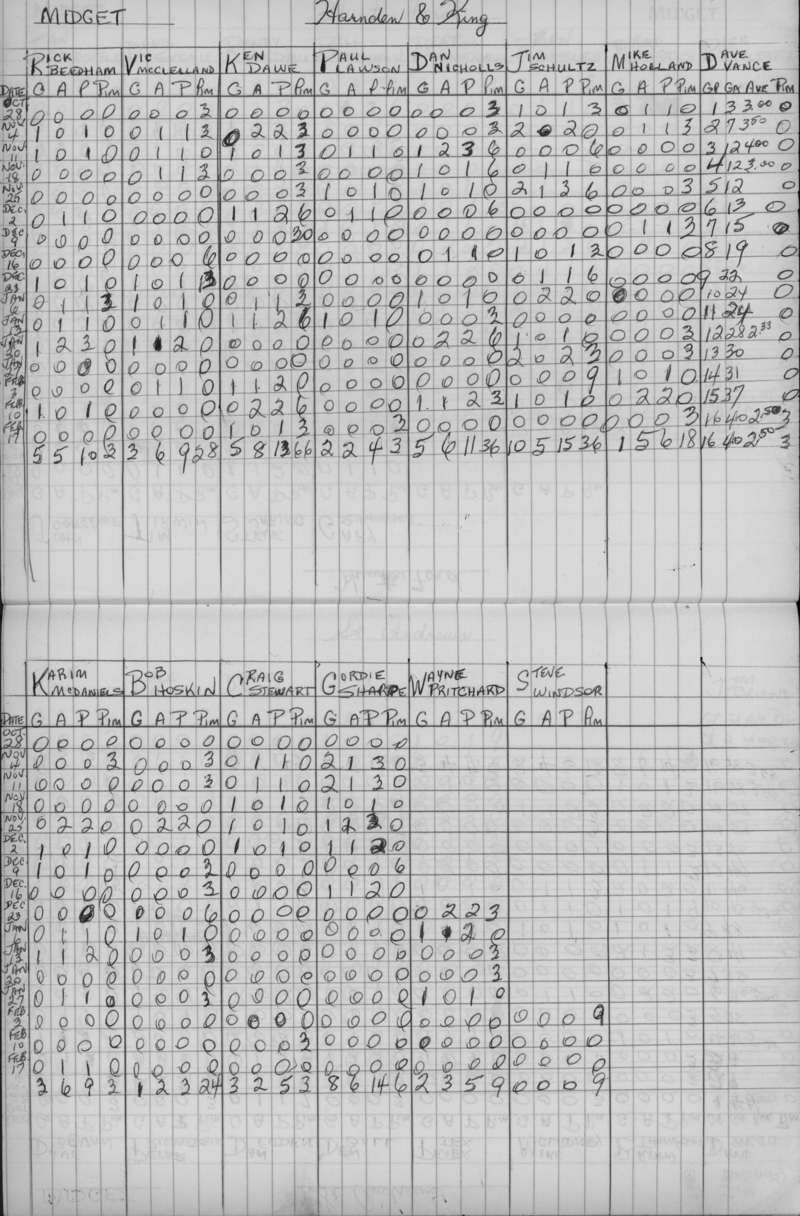 MIDGET Harnden & King
RICK BEEDHAM VIC McCLELLAND KEN DAWE PAUL LAWSON DAN NICHOLLS JIM SCHULTZ MIKE HOLLAND DAVE VANCE
DATE G A P Pim G A P Pim G A P Pim G A P Pim G A P Pim G A P Pim G A P Pim GP GA AVE Pim
OCT 28 0 0 0 0 0 0 0 3 0 0 0 0 0 0 0 0 0 0 0 3 1 0 1 3 0 1 1 0 1 3 3.00 0
NOV 4 1 0 1 0 0 1 1 3 0 2 2 3 0 0 0 0 0 0 0 3 2 0 2 0 0 1 1 3 2 7 3.50 0
NOV 11 1 0 1 0 0 1 1 0 1 0 1 3 0 1 1 0 1 2 3 6 0 0 0 6 0 0 0 0 3 12 4.00 0
NOV 18 0 0 0 0 0 1 1 3 0 0 0 3 0 0 0 0 1 0 1 6 0 1 1 0 0 0 0 0 4 12 3.00 0
NOV 25 0 0 0 0 0 0 0 0 0 0 0 3 1 0 1 0 1 0 1 0 2 1 3 6 0 0 0 3 5 12 0
DEC. 2 0 1 1 0 0 0 0 0 1 1 2 6 0 1 1 0 0 0 0 6 0 0 0 0 0 0 0 0 6 13 0
DEC 9 0 0 0 0 0 0 0 0 0 0 0 30 0 0 0 0 0 0 0 0 0 0 0 0 0 1 1 3 7 15 0
DEC. 16 0 0 0 0 0 0 0 6 0 0 0 0 0 0 0 0 0 1 1 0 1 0 1 3 0 0 0 0 8 19 0
DEC 23 1 0 1 0 1 0 1 3 0 0 0 0 0 0 0 0 0 0 0 0 0 1 1 6 0 0 0 0 9 22 0
JAN 6 0 1 1 3 1 0 1 0 0 1 1 3 0 0 0 0 1 0 1 0 0 2 2 0 0 0 0 0 10 24 0
JAN 13 0 1 1 0 0 1 1 0 1 1 2 6 1 0 1 0 0 0 0 3 0 0 0 0 0 0 0 0 11 24 0
JAN 20 1 2 3 0 1 1 2 0 0 0 0 0 0 0 0 0 0 2 2 6 1 0 1 0 0 0 0 3 12 28 2.33 0
JAN 27 0 0 0 0 0 0 0 0 0 0 0 0 0 0 0 0 0 0 0 0 2 0 2 3 0 0 0 3 13 30 0
FEB 3 0 0 0 0 0 1 1 0 1 1 2 0 0 0 0 0 0 0 0 0 0 0 0 9 1 0 1 0 14 31 0
FEB 10 1 0 1 0 0 0 0 0 0 2 2 6 0 0 0 0 1 1 2 3 1 0 1 0 0 2 2 0 15 37 0
FEB 17 0 0 0 0 0 0 0 0 1 0 1 3 0 0 0 3 0 0 0 0 0 0 0 0 0 0 0 3 16 40 2.50 3
5 5 10 3 3 6 9 28 5 8 13 66 2 2 4 3 5 6 11 36 10 5 15 36 1 5 6 18 16 40 2.50 3
KARIM McDANIELS BOB HOSKIN CRAIG STEWART GORDIE SHARPE WAYNE PRITCHARD STEVE WINDSOR
DATE G A P Pim G A P Pim G A P Pim G A P Pim G A P Pim G A P Pim
OCT 28 0 0 0 0 0 0 0 0 0 0 0 0 0 0 0 0
NOV 4 0 0 0 3 0 0 0 3 0 1 1 0 2 1 3 0
NOV 11 0 0 0 0 0 0 0 3 0 1 1 0 2 1 3 0
NOV 18 0 0 0 0 0 0 0 0 1 0 1 0 1 0 1 0
NOV. 25 0 2 2 0 0 2 2 0 1 0 1 0 1 2 3 0
DEC. 2 1 0 1 0 0 0 0 0 1 0 1 0 1 1 2 0
DEC 9 1 0 1 0 0 0 0 3 0 0 0 0 0 0 0 6
DEC. 16 0 0 0 0 0 0 0 3 0 0 0 0 1 1 2 0
DEC 23 0 0 0 0 0 0 0 6 0 0 0 0 0 0 0 0 0 2 2 3
JAN 6 0 1 1 0 1 0 1 0 0 0 0 0 0 0 0 0 1 1 2 0
JAN 13 1 1 2 0 0 0 0 3 0 0 0 0 0 0 0 0 0 0 0 3
JAN 20 0 0 0 0 0 0 0 0 0 0 0 0 0 0 0 0 0 0 0 3
JAN 27 0 1 1 0 0 0 0 3 0 0 0 0 0 0 0 0 1 0 1 0
FEB 3 0 0 0 0 0 0 0 0 0 0 0 0 0 0 0 0 0 0 0 0 0 0 0 9
FEB 10 0 0 0 0 0 0 0 0 0 0 0 3 0 0 0 0 0 0 0 0 0 0 0 0
FEB 17 0 1 1 0 0 0 0 0 0 0 0 0 0 0 0 0 0 0 0 0 0 0 0 0
3 6 9 3 1 2 3 24 3 2 5 3 8 6 14 6 2 3 5 9 0 0 0 9